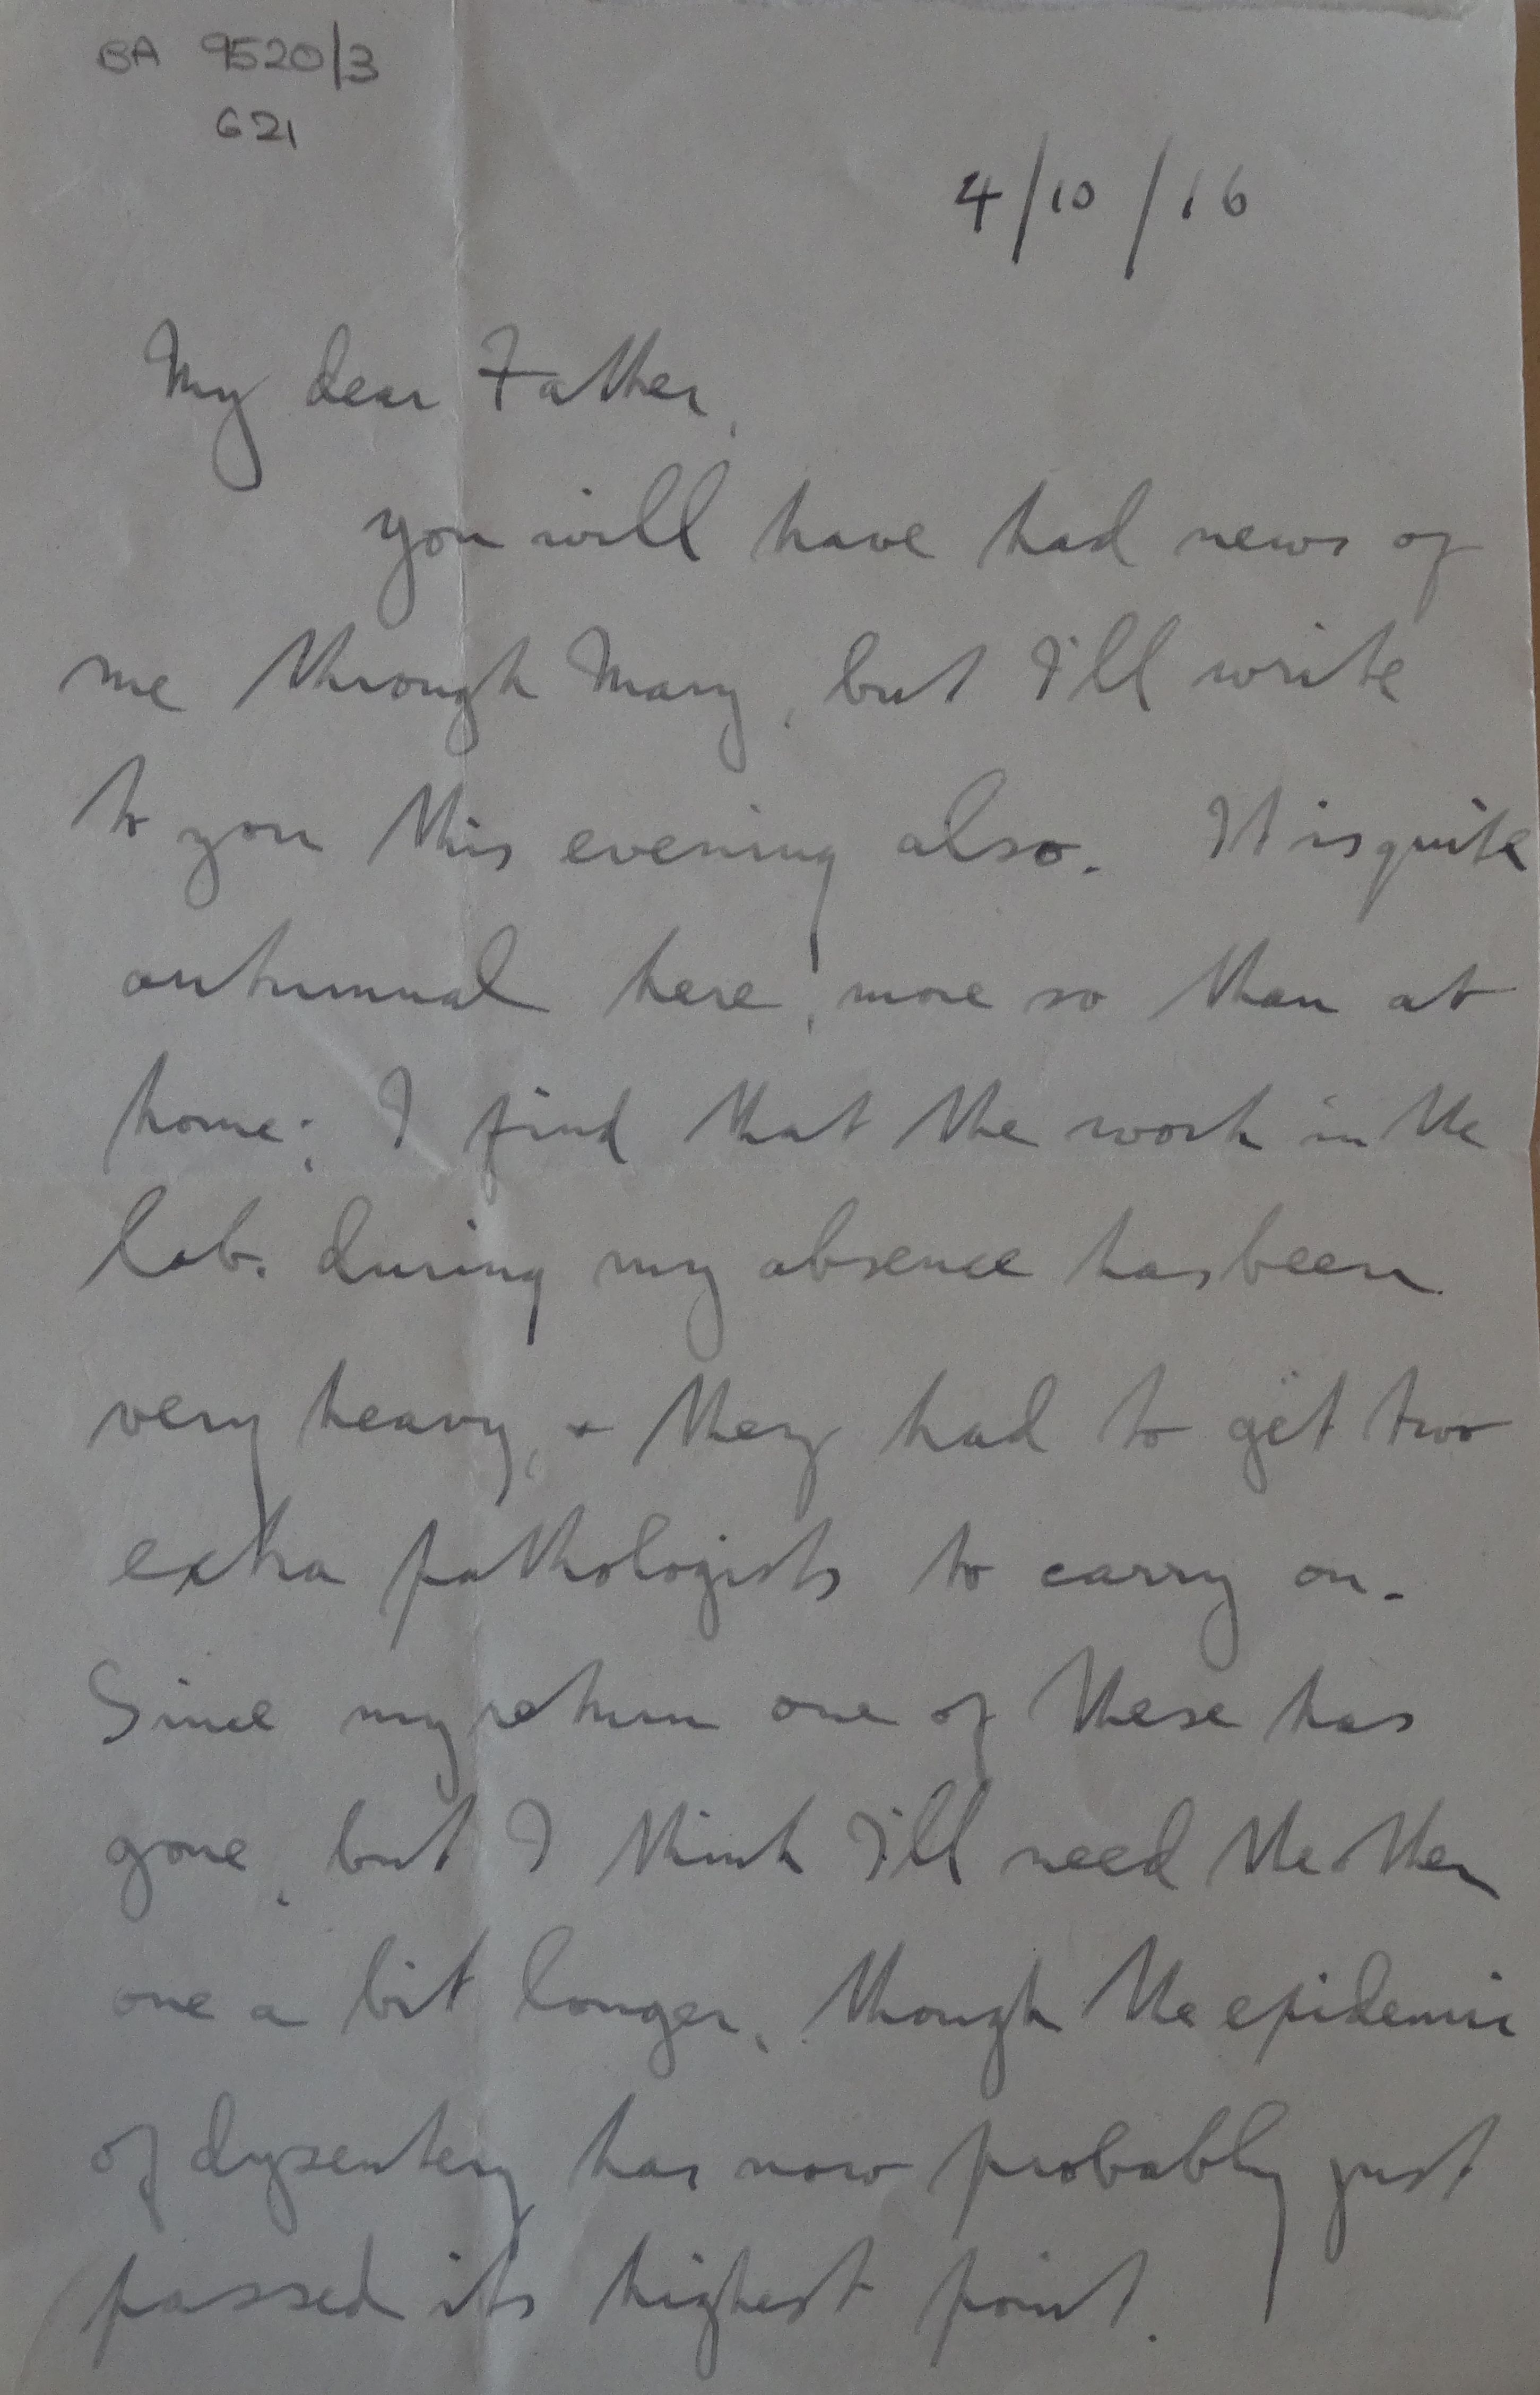 BA 9520/3
621
4/10/16
My dear Father,
you will have had news of
me through Mary, but I'll write
to you this evening also. It is quite
autumnal here, more so than at
home; I find that the work in the
lab. during my absence has been
very heavy, & they had to get two
extra pathologists to carry on.
Since my return one of these has
gone, but I think I'll need the other
one a bit longer, though the epidemic
of dysentery has now probably just
passed its highest point.